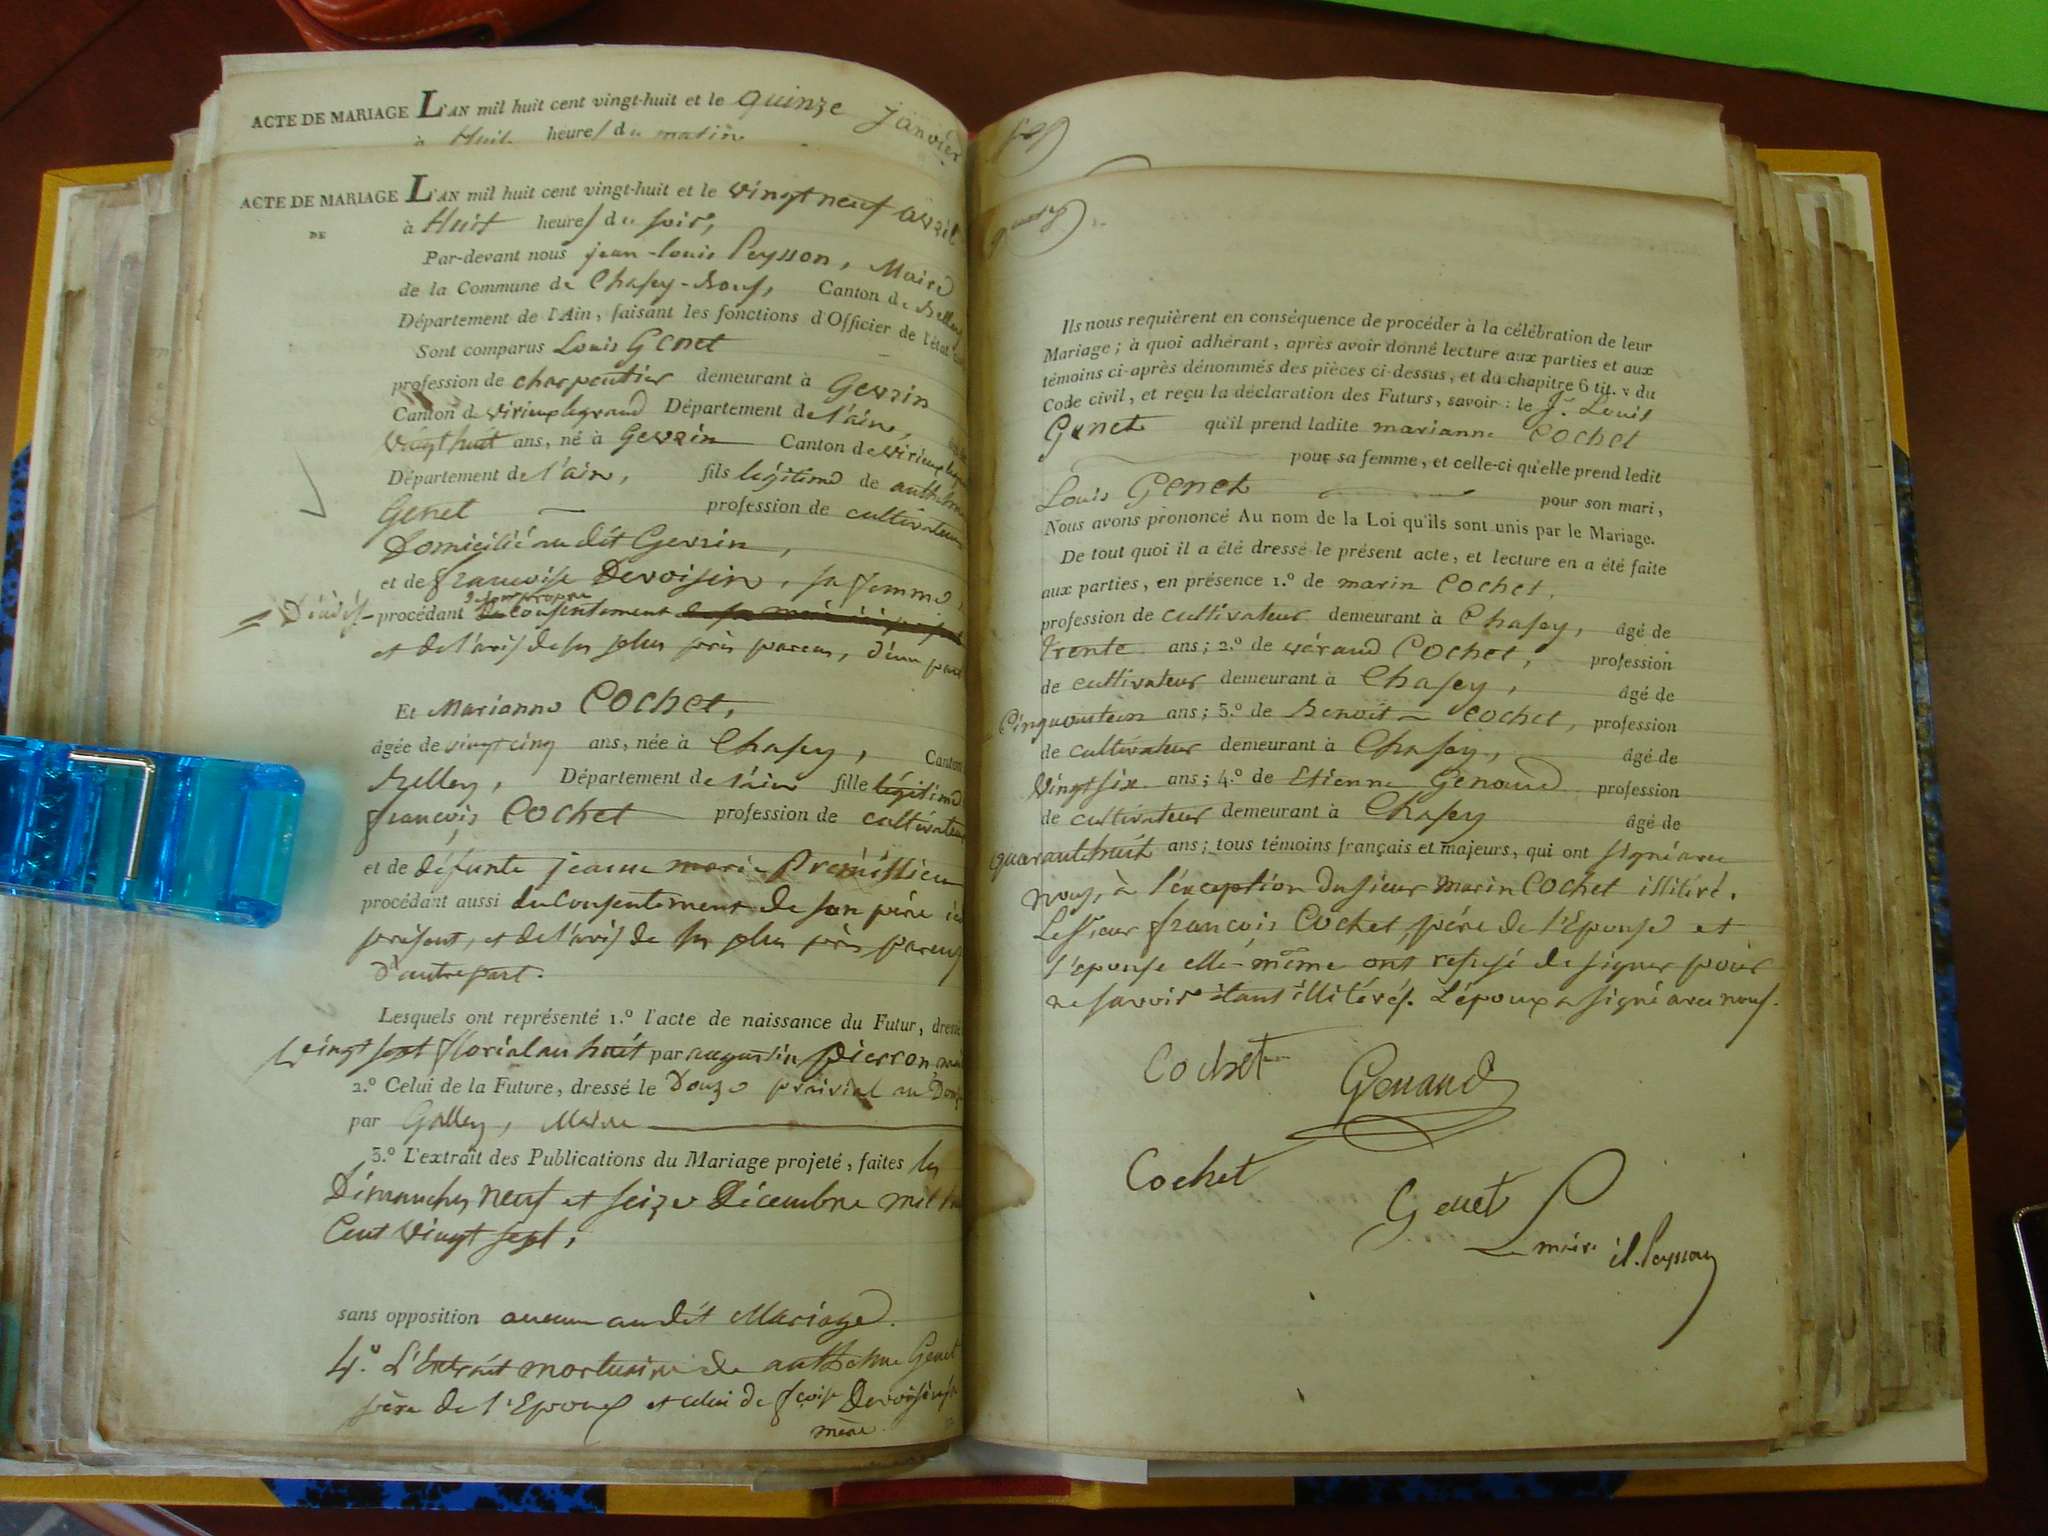 ACTE DE MARIAGE L'AN mil huit cent vingt-huit et le quinze janvier
à Huit heures du matin
ACTE DE MARIAGE L'AN mil huit cent vingt-huit et le vingt neuf avril
DE
à Huit heures du soir,
Par-devant nous jean-louis Peysson, Maire
de la Commune de Chasey-Bons, Canton de Belley
Département de l'Ain, faisant les fonctions d'Officier de l'état
Sont comparus Louis Genet
profession de charpentier demeurant à Gevrin
Canton de virieu legrand Département de l'ain,
vingt huit ans, né à Gevrin Canton de virieu
Département de l'ain, fils légitime de anthelme
Genet profession de cultivateur
Domicilié au dit Gevrin,
et de francoise Devoisin, sa femme,
= Décédés - procédant de son propre Consentement
et de l'avis de ses plus près parens, d'une part
Et Marianne COCHET,
âgée de vingt cinq ans, née à Chasey, Canton
Belley, Département de l'ain fille légitime
francois COCHET profession de cultivateur
et de défunte jeanne marie Premillieu
procédant aussi du Consentement de son père ici
présent, et de l'avis de ses plus près parens
d'autre part.
Lesquels ont représenté 1.º l'acte de naissance du Futur, dressé
vingt sept floréal an huit par augustin pierron,
2.º Celui de la Future, dressé le Douze prairial an Douze
par Golley, Maire
3.º L'extrait des Publications du Mariage projeté, faites les
Dimanches neuf et seize Décembre mil
Cent vingt sept,
sans opposition aucune au dit Mariage.
4.º L'Extrait mortuaire de anthelme Genet
père de l'Epoux et celui de fcoise Devoisin sa
mère.
Ils nous requièrent en conséquence de procéder à la célébration de leur
Mariage; à quoi adhérant, après avoir donné lecture aux parties et aux
témoins ci-après dénommés des pièces ci-dessus, et du chapitre 6 tit. v du
Code civil, et reçu la déclaration des Futurs, savoir: le Sr Louis
Genet qu'il prend ladite marianne COCHET
pour sa femme, et celle-ci qu'elle prend ledit
Louis Genet pour son mari,
Nous avons prononcé Au nom de la Loi qu'ils sont unis par le Mariage.
De tout quoi il a été dressé le présent acte, et lecture en a été faite
aux parties, en présence 1.º de marin COCHET,
profession de cultivateur demeurant à Chasey, âgé de
trente ans; 2.º de vérand COCHET, profession
de cultivateur demeurant à Chasey, âgé de
Cinquante un ans; 3.º de Benoit COCHET, profession
de cultivateur demeurant à Chasey, âgé de
vingt six ans; 4.º de Etienne Genand profession
de cultivateur demeurant à Chasey âgé de
quarante huit ans; tous témoins français et majeurs, qui ont signé avec
nous, à l'exception du sieur Marin COCHET illitéré.
Le Sieur francois COCHET père de l'Epouse et
l'epouse elle-même ont refusé de signer pour
ne savoir étant illitérés. L'époux a signé avec nous.
Cochet
Genand
Cochet
Genet
Le maire jl. Peysson